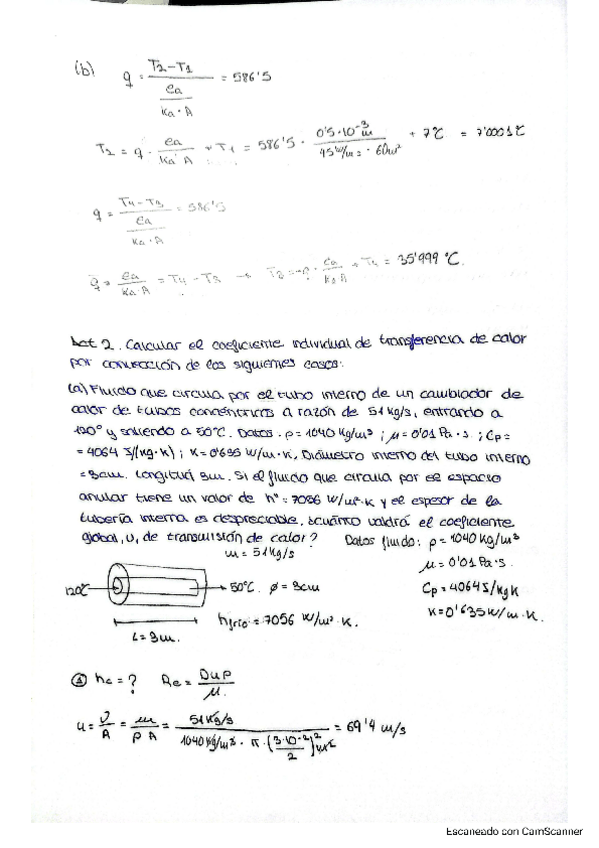 (b) q = T2-T1 / (ea / Ka·A) = 586'5
T2 = q · ea / Ka·A + T1 = 586'5 · 0'5·10⁻³ m / 45 W/m= · 60m² + 7°C = 7'0001°C
q = T4-T3 / (ea / Ka·A) = 586'5
q · ea / Ka·A = T4-T3 → T3 = -q · ea / Ka·A + T4 = 35'999 °C.
Act 2. Calcular el coeficiente individual de transferencia de calor
por convección de los siguientes casos:
(a) Fluido que circula por el tubo interno de un cambiador de
calor de tubos concéntricos a razón de 51 kg/s, entrando a
120° y saliendo a 50°C. Datos. ρ = 1040 kg/m³ ; μ = 0'01 Pa·s ; Cp =
= 4064 J/(kg·K) ; K = 0'635 W/m·K. Diámetro interno del tubo interno
= 3cm. Longitud 3m. Si el fluido que circula por el espacio
anular tiene un valor de h = 7056 W/m²·K y el espesor de la
tubería interna es despreciable, ¿cuánto valdrá el coeficiente
global, U, de transmisión de calor? Datos fluido: ρ = 1040 kg/m³
m = 51 kg/s
μ = 0'01 Pa·s.
120°C 50°C. ø = 3cm Cp = 4064 J/kg K
hfrío = 7056 W/m²·K. K = 0'635 W/m·K.
L = 3m.
① hc = ? Re = Duρ / μ.
u = V / A = m / ρ A = 51 kg/s / 1040 kg/m³ · π · (3·10⁻² / 2)² m² = 69'4 m/s
Escaneado con CamScanner